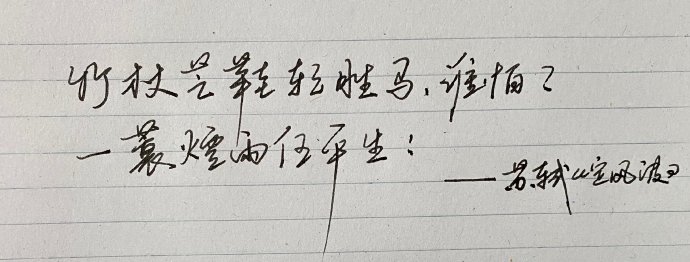 竹杖芒鞋轻胜马,谁怕?
一蓑煙雨任平生!
——苏轼《定风波》